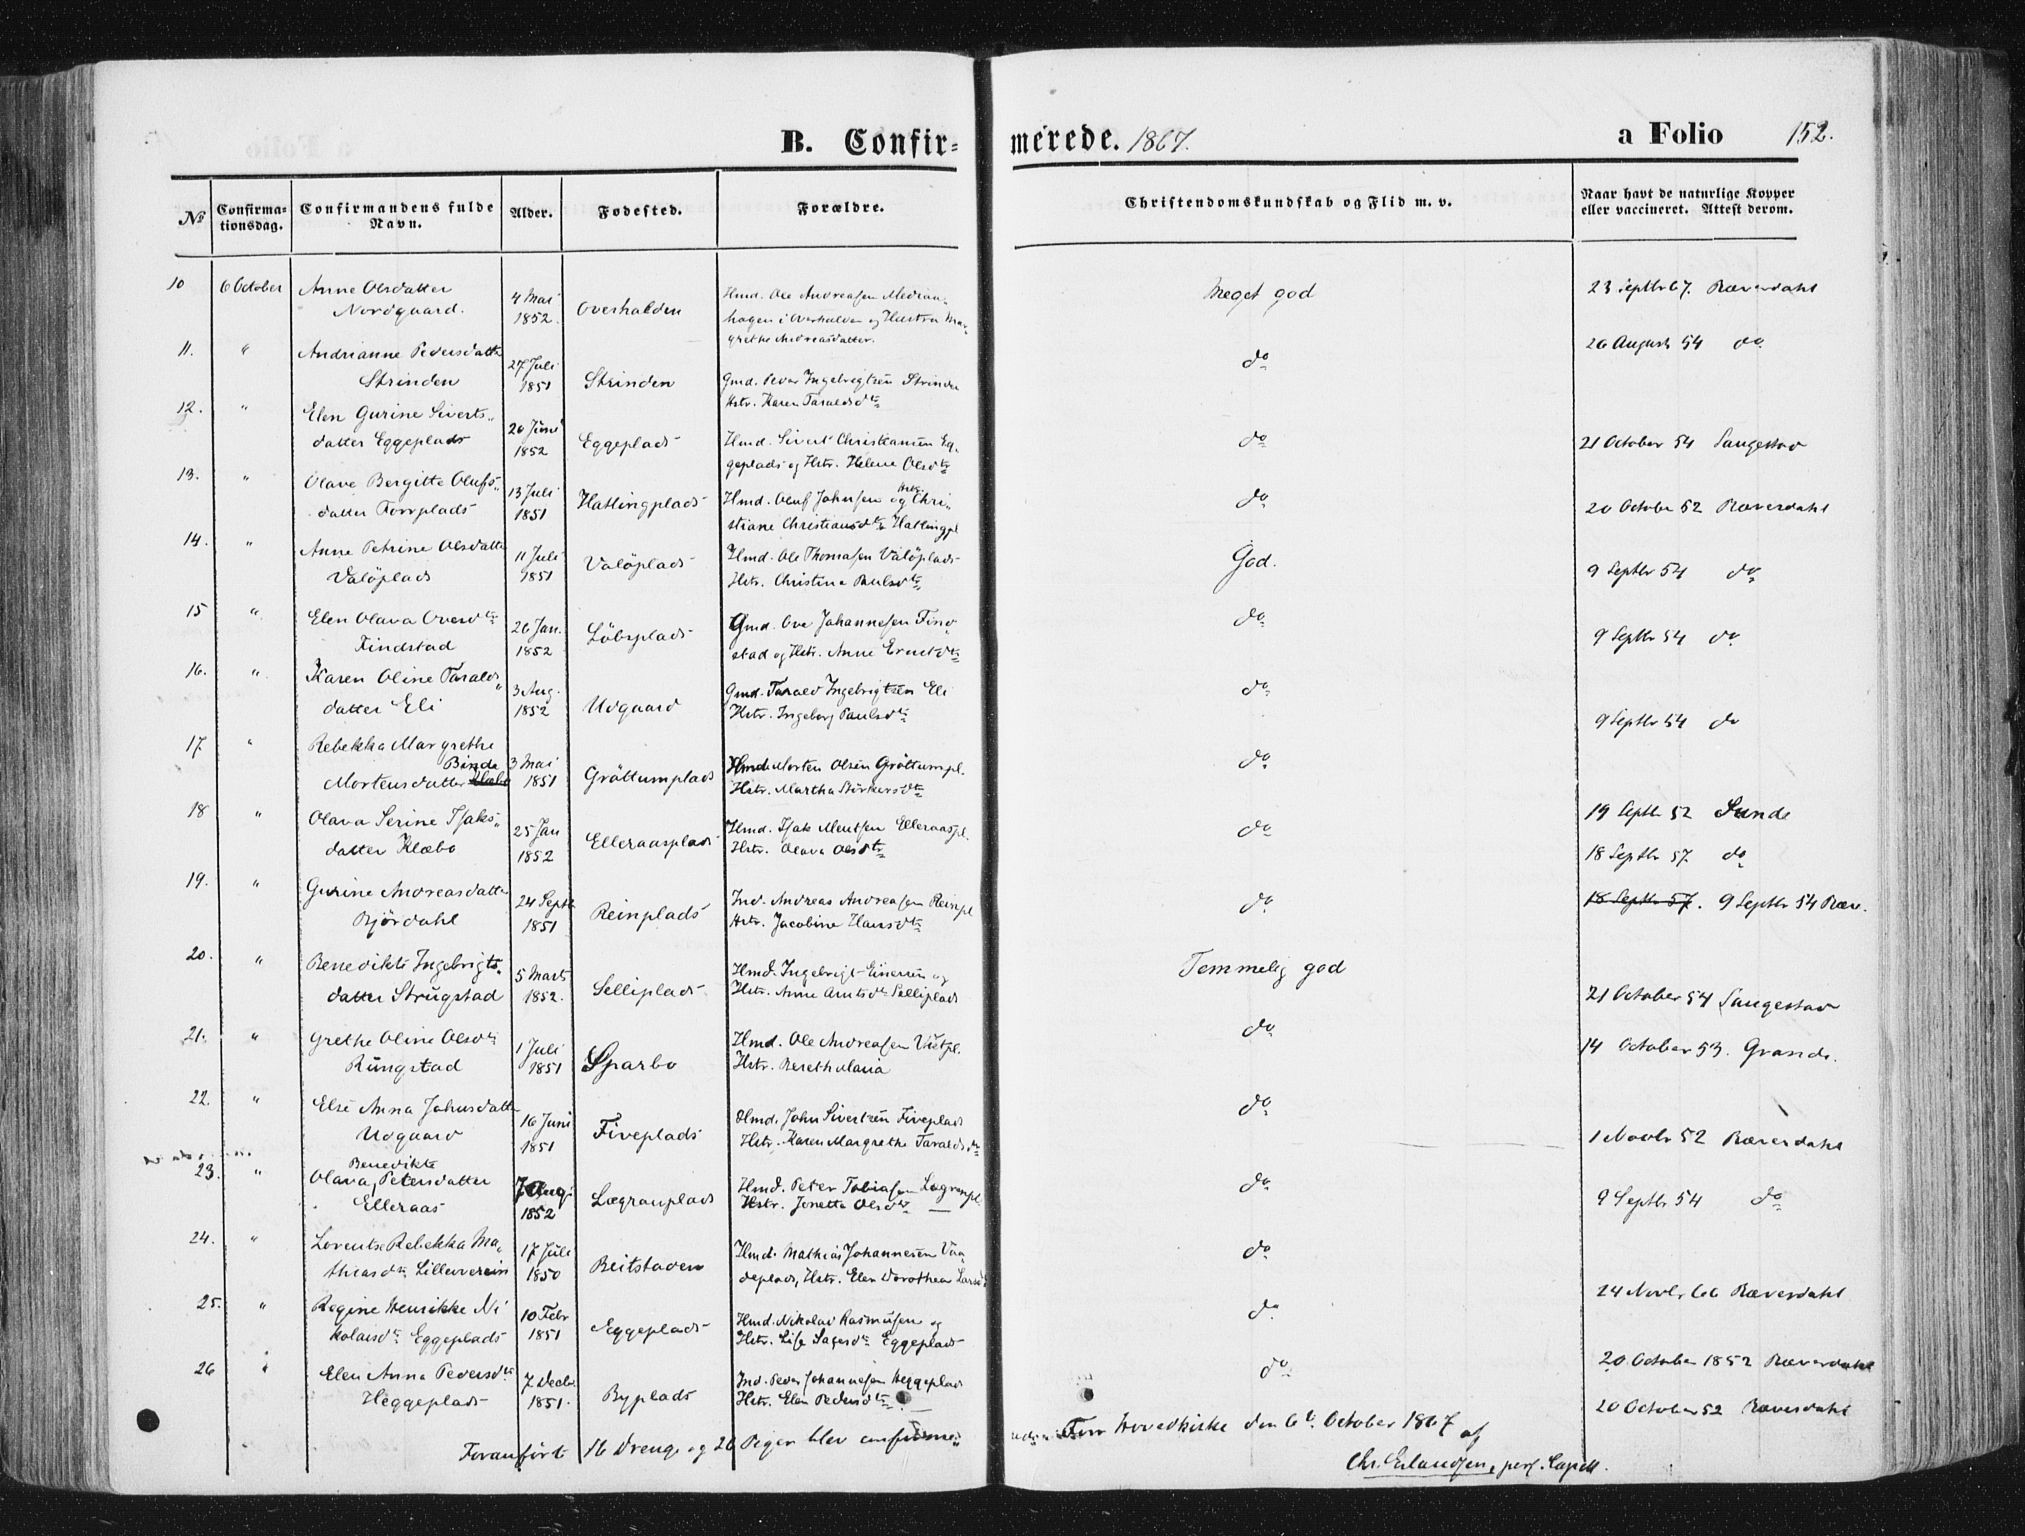 B. Confir=
merede. 1867.
a Folio 152.
No
Confirma=
tionsdag.
Confirmandens fulde
Navn.
Alder.
Fødested.
Forældre.
Christendomskundskab og Flid m. v.
Naar havt de naturlige Kopper
eller vaccineret. Attest derom.
10 6 October Anne Olsdatter
Nordgaard.
4 Mai
1852.
Overhalden
Hmd. Ole Andreasen Median-
hagen i Overhalden og Hustru Mar-
grethe Andreasdatter.
Meget god
23 Septbr 67. Ræverdahl
11. " Andrianne Pedersdattr
Strinden
27 Juli
1851
Strinden
Gmd. Peder Ingebrigtsen Strinden
Hstr. Karen Taraldsdtr
do
26 August 54 do
12. " Elen Gurine Siverts-
datter Eggeplads
20 Juni
1852
Eggeplads
Hmd. Sivert Christiansen Eg-
geplads og Hstr. Helene Olsdtr
do
21 October 54 Saugestad
13. " Olave Bergitte Olufs-
datter Forrplads
13 Juli
1851
Hallingplads
Hmd. Oluf Johnsen og Hstr. Chri-
stiane Christiansdtr Hallingpl
do
20 October 52 Ræverdahl
14. " Anne Petrine Olsdattr
Valøplads
11 Juli
1851
Valøplads
Hmd. Ole Thomasen Valøplads
Hstr. Christine Paulsdtr
God.
9 Septbr 54 do
15 " Elen Olava Ovesdtr
Findstad
26 Jan.
1852
Løbsplads
Gmd. Ove Johannesen Find-
stad og Hstr. Anne Erntsdtr
do
9 Septbr 54 do
16. " Karen Oline Taralds-
datter Eli
3 Aug.
1852
Udgaard
Gmd. Tarald Ingebrigtsen Eli
Hstr. Ingeborg Paulsdtr
do
9 Septbr 54 do
17. " Rebekka Margrethe
Mortensdatter Klæbo Binde
3 Mai
1851
Grøttumplads
Hmd. Morten Olsen Grøttumpl.
Hstr. Martha Størkersdtr
do
19 Septbr 52 Sunde
18 " Olava Serine Isaks-
datter Klæbo
25 Jan
1852
Elleraasplads
Hmd. Isak Mentsen Elleraaspl.
Hstr. Olava Olsdtr
do
18 Septbr 57 do
19. " Gurine Andreasdattr
Bjørdahl
24 Septr
1851
Reinplads
Ind. Andreas Andreasen Reinpl
Hstr. Jacobine Hansdtr
do
18 Septbr 57. 9 Septbr 54 Ræve.
20. " Benedikte Ingebrigts-
datter Strugstad
5 Marts
1852.
Selliplads
Hmd. Ingebrigt Einersen og
Hstr. Anne Arntsdtr Selliplads
Temmelig god
21 October 54 Saugestad
21. " Grethe Oline Olsdtr
Rungstad
1 Juli
1851
Sparbo
Hmd. Ole Andreasen Vistpl.
Hstr. Bereth Maria
do
14 October 53. Grande.
22. " Else Anna Johnsdattr
Udgaard
16 Juni
1851
Fiveplads
Hmd. John Sivertsen Fiveplads
Hstr. Karen Margrethe Taraldsdtr
do
1 Novbr 52 Ræverdahl
23. " Olava Benedikte Petersdatter
Elleraas
7 Aug.
1852
Lægranplads
Hmd. Peter Tobiasen Lægranpl
Hstr. Jonetta Olsdtr
do
9 Septbr 54 do
24. " Lorentse Rebekka Ma-
thiasdtr Lilleverein
17 Juli
1850
Beitstaden
Hmd. Mathias Johannesen Vaa-
deplads, Hstr. Elen Dorothea Larsdtr
do
24 Novbr 66 Ræverdahl
25. " Regine Henrikke Ni
kolaisdtr Eggeplads
10 Febr
1851
Eggeplads
Hmd. Nikolai Rasmusen og
Hstr. Lise Sagesdtr Eggeplads
do
20 October 1852 Ræverdahl
26 " Elen Anna Pedersdtr
Heggeplads
7 Decbr
1851.
Byplads
Ind. Peder Johannesen Heggeplads
Hstr. Elen Pedersdtr
do
20 October 52 Ræverdahl
Foranførte 16 Drenge og 26 Piger blev confirme-
rede i Forr Hovedkirke den 6te October 1867 af
Chr. Erlandsen, pers. Capell.